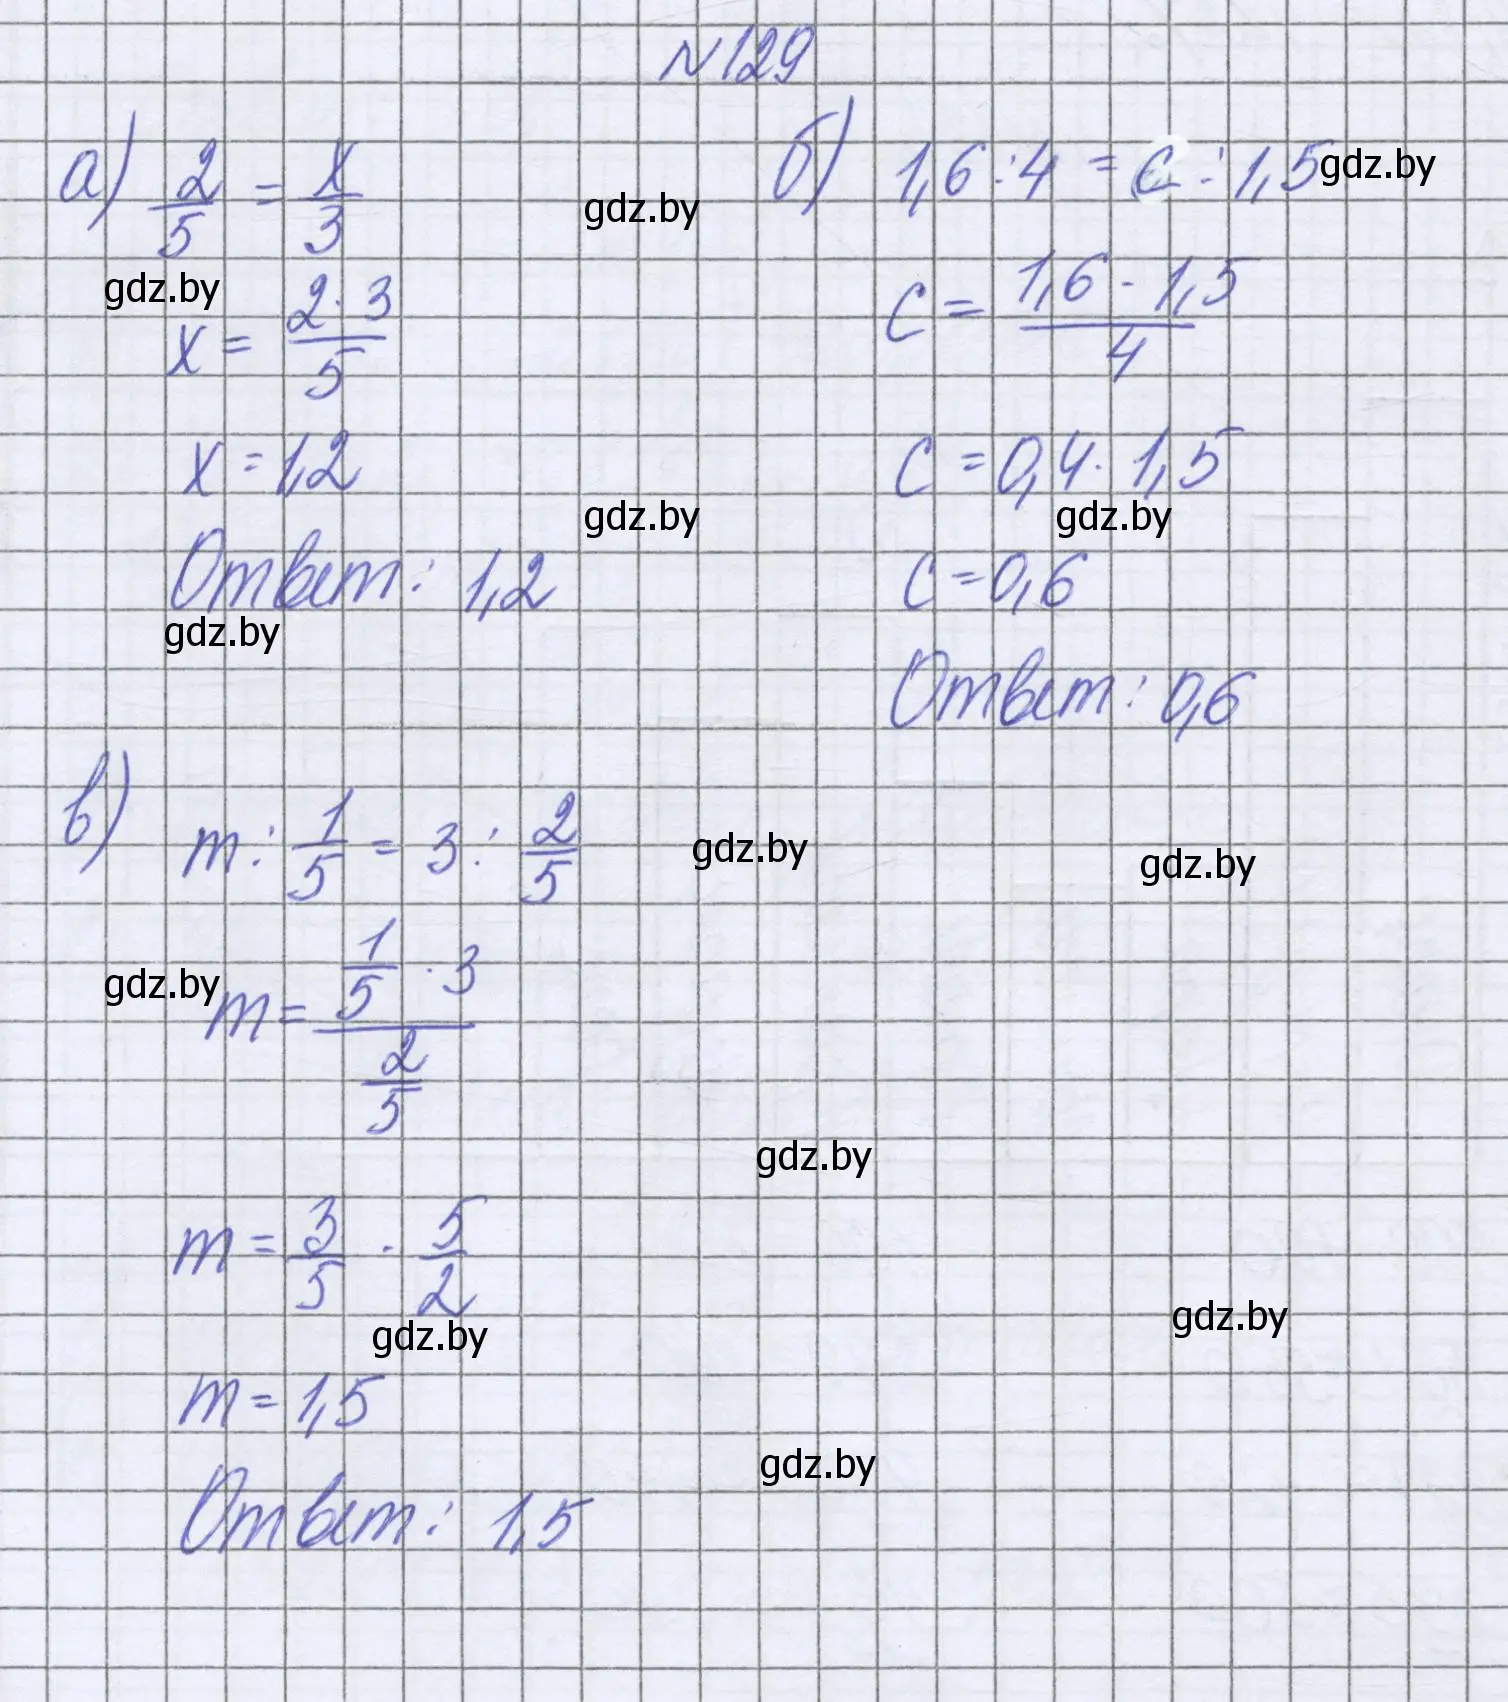 №129
а) 2/5 = x/3
x = 2·3/5
x = 1,2
Ответ: 1,2
б) 1,6 : 4 = c : 1,5
c = 1,6 · 1,5/4
c = 0,4 · 1,5
c = 0,6
Ответ: 0,6
в) m : 1/5 = 3 : 2/5
m = (1/5 · 3)/(2/5)
m = 3/5 · 5/2
m = 1,5
Ответ: 1,5
gdz.by
gdz.by
gdz.by
gdz.by
gdz.by
gdz.by
gdz.by
gdz.by
gdz.by
gdz.by
gdz.by
gdz.by
gdz.by